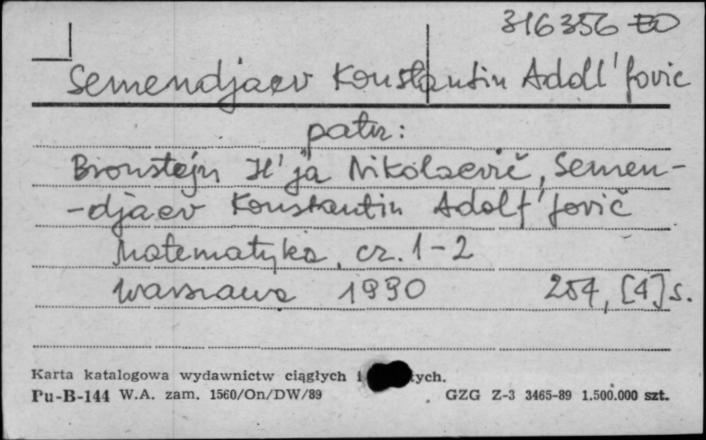 316356
Semendjaev Konstantin Adolf'fovic
patrz:
Bronstejn Il'ja Nikolaevič, Semen-
-djaev Konstantin Adolf'fovič
Matematyka, cz. 1-2
Warszawa 1990 254, [4] s.
Karta katalogowa wydawnictw ciągłych i
Pu-B-144 W.A. zam. 1560/On/DW/89 GZG Z-3 3465-89 1.500.000 szt.